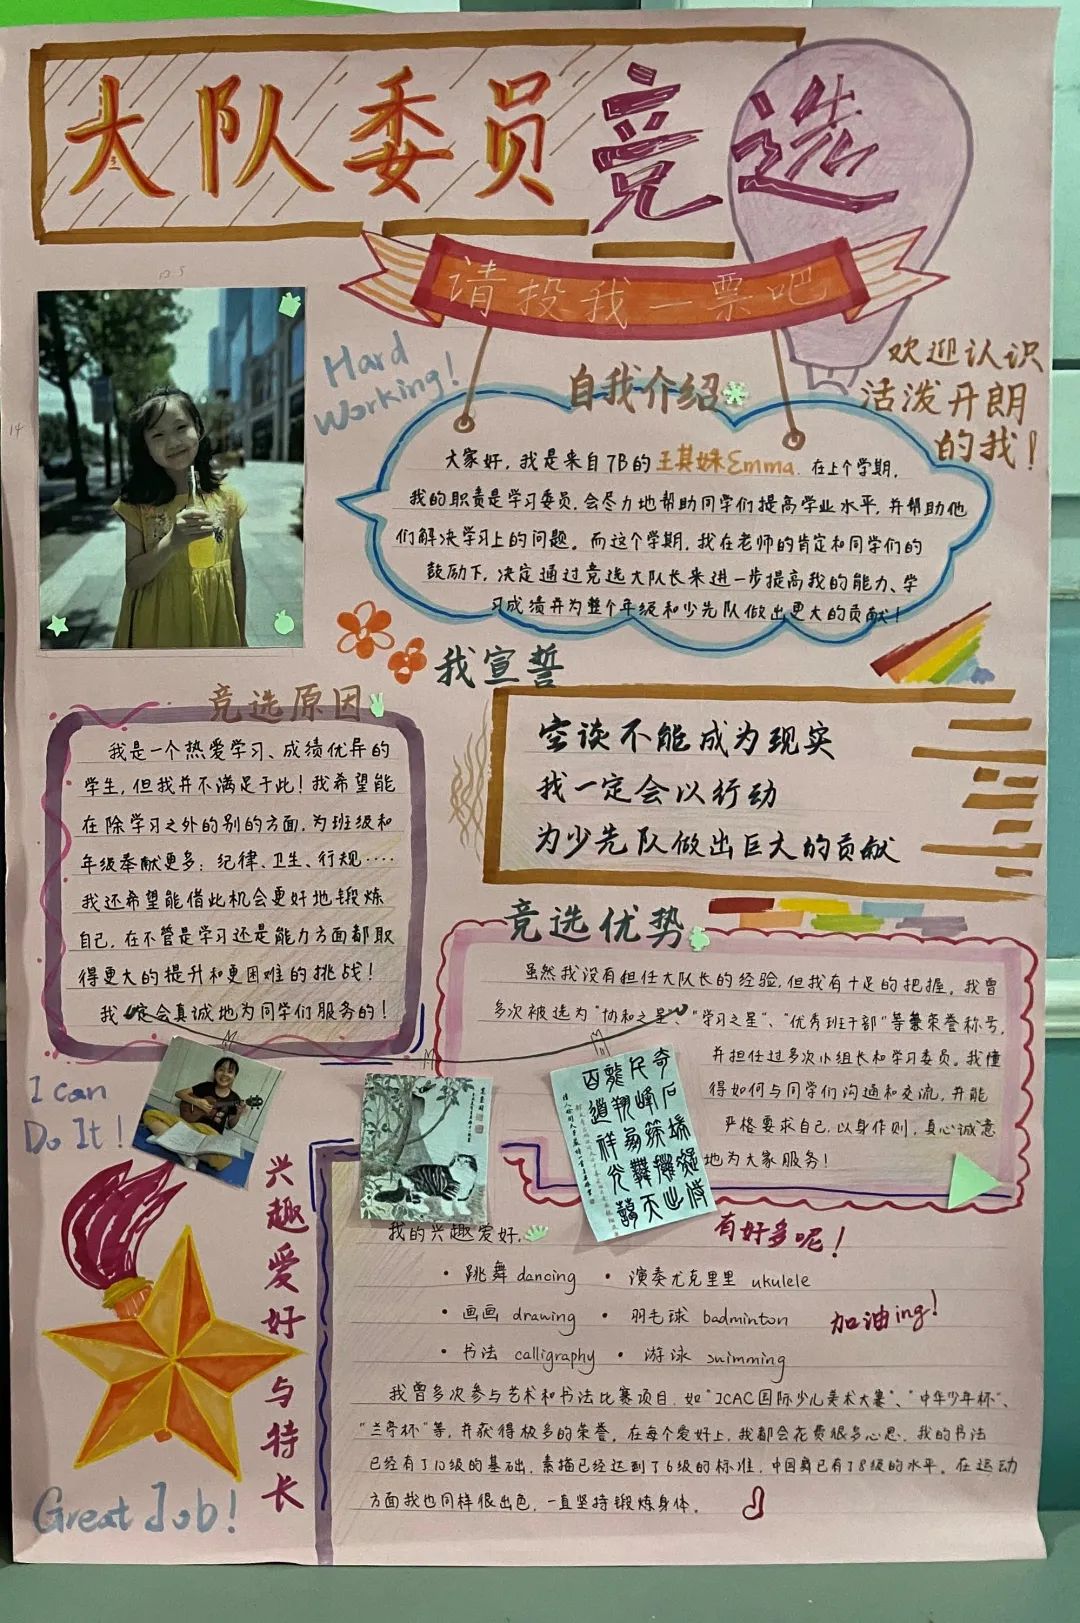 大队委员竞选
请投我一票吧
Hard
Working!
欢迎认识
活泼开朗
的我!
自我介绍
大家好,我是来自7B的王其姝Emma.在上个学期,
我的职责是学习委员,会尽力地帮助同学们提高学业水平,并帮助他
们解决学习上的问题。而这个学期,我在老师的肯定和同学们的
鼓励下,决定通过竞选大队长来进一步提高我的能力、学
习成绩并为整个年级和少先队做出更大的贡献!
我宣誓
空谈不能成为现实
我一定会以行动
为少先队做出巨大的贡献
竞选原因
我是一个热爱学习、成绩优异的
学生,但我并不满足于此!我希望能
在除学习之外的别的方面,为班级和
年级奉献更多:纪律、卫生、行规····
我还希望能借此机会更好地锻炼
自己,在不管是学习还是能力方面都取
得更大的提升和更困难的挑战!
我一定会真诚地为同学们服务的!
竞选优势
虽然我没有担任大队长的经验,但我有十足的把握。我曾
多次被选为“协和之星”、“学习之星”、“优秀班干部”等繁荣誉称号,
并担任过多次小组长和学习委员。我懂
得如何与同学们沟通和交流,并能
严格要求自己,以身作则,真心诚意
地为大家服务!
I can
Do It!
兴趣爱好与特长
Great Job!
我的兴趣爱好,
有好多呢!
• 跳舞 dancing • 演奏尤克里里 ukulele
• 画画 drawing • 羽毛球 badminton
加油ing!
• 书法 calligraphy • 游泳 swimming
我曾多次参与艺术和书法比赛项目,如“JCAC国际少儿美术大赛”、“中华少年杯”、
“兰亭杯”等,并获得极多的荣誉。在每个爱好上,我都会花费很多心思,我的书法
已经有了10级的基础,素描已经达到了6级的标准,中国舞已有了8级的水平。在运动
方面我也同样很出色,一直坚持锻炼身体。